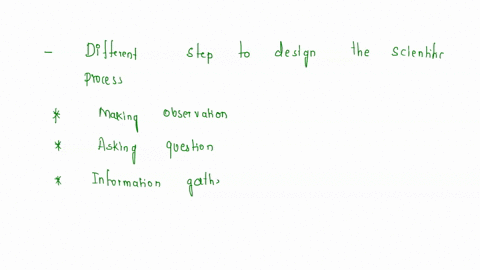 - Different step to design the scientific
process
* Making observation
* Asking question
* Information gath